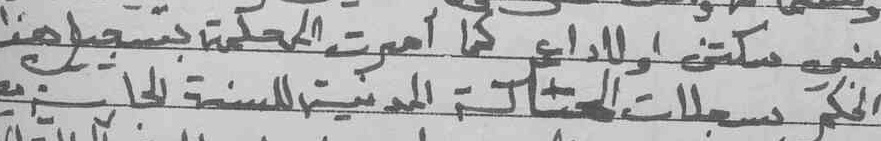 بني سكتن اولاداع كما أمرت المحكمة بتسجيل هذا
الحكم بسجلات الحالة المدنية للسنة الجارية